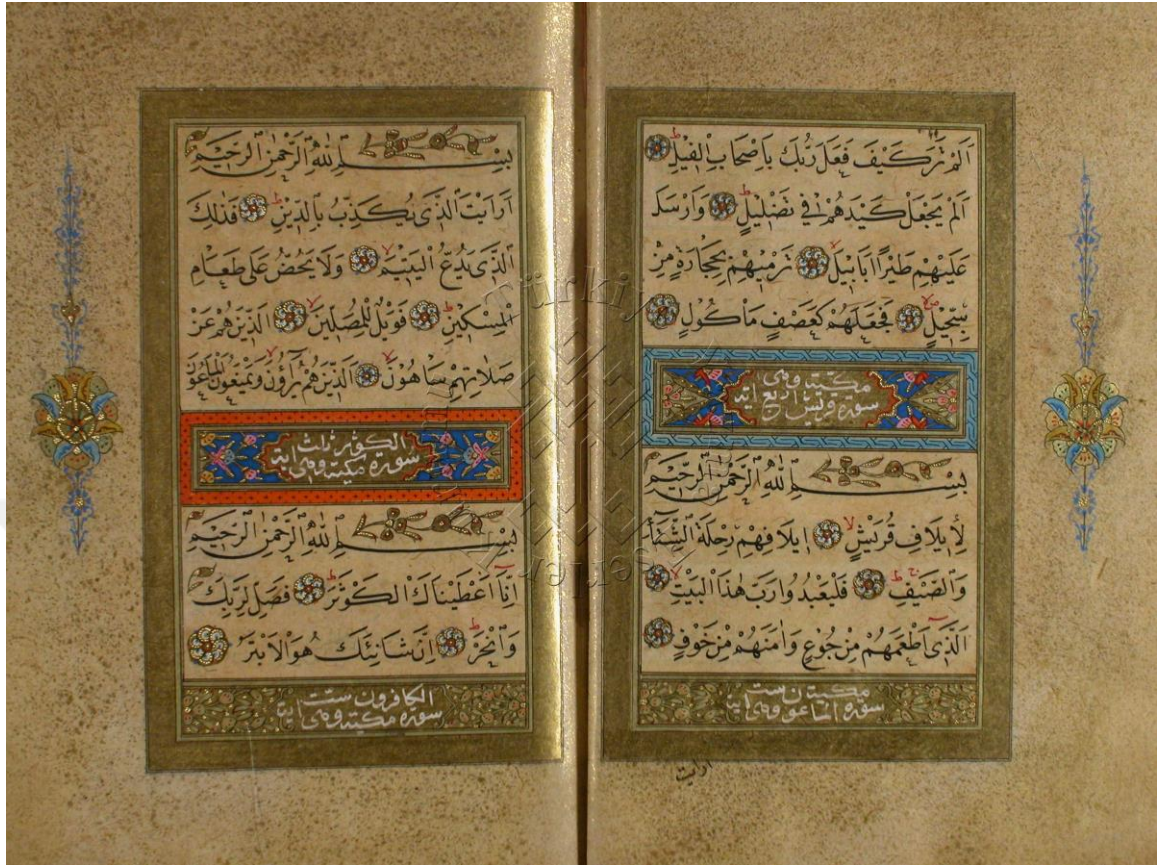 اَلَمْ تَرَ كَيْفَ فَعَلَ رَبُّكَ بِاَصْحَابِ الْفِيلِ
اَلَمْ يَجْعَلْ كَيْدَهُمْ فِي تَضْلِيلٍ وَاَرْسَلَ
عَلَيْهِمْ طَيْرًا اَبَابِيلَ تَرْمِيهِمْ بِحِجَارَةٍ مِنْ
سِجِّيلٍ فَجَعَلَهُمْ كَعَصْفٍ مَاْكُولٍ
مكية وهي
سورة قريش اربع اية
بِسْمِ اللّٰهِ الرَّحْمٰنِ الرَّحِيمِ
لِاِيلَافِ قُرَيْشٍ اِيلَافِهِمْ رِحْلَةَ الشِّتَاءِ
وَالصَّيْفِ فَلْيَعْبُدُوا رَبَّ هٰذَا الْبَيْتِ
اَلَّذِي اَطْعَمَهُمْ مِنْ جُوعٍ وَاٰمَنَهُمْ مِنْ خَوْفٍ
مكية ست
سورة الماعون وهي اية
ارايت
بِسْمِ اللّٰهِ الرَّحْمٰنِ الرَّحِيمِ
اَرَاَيْتَ الَّذِي يُكَذِّبُ بِالدِّينِ فَذٰلِكَ
الَّذِي يَدُعُّ الْيَتِيمَ وَلَا يَحُضُّ عَلٰى طَعَامِ
الْمِسْكِينِ فَوَيْلٌ لِلْمُصَلِّينَ اَلَّذِينَ هُمْ عَنْ
صَلَاتِهِمْ سَاهُونَ اَلَّذِينَ هُمْ يُرَاؤُنَ وَيَمْنَعُونَ الْمَاعُونَ
الكوثر ثلث
سورة مكية وهي اية
بِسْمِ اللّٰهِ الرَّحْمٰنِ الرَّحِيمِ
اِنَّا اَعْطَيْنَاكَ الْكَوْثَرَ فَصَلِّ لِرَبِّكَ
وَانْحَرْ اِنَّ شَانِئَكَ هُوَ الْاَبْتَرُ
الكافرون ست
سورة مكية وهي ايت
Türkiy